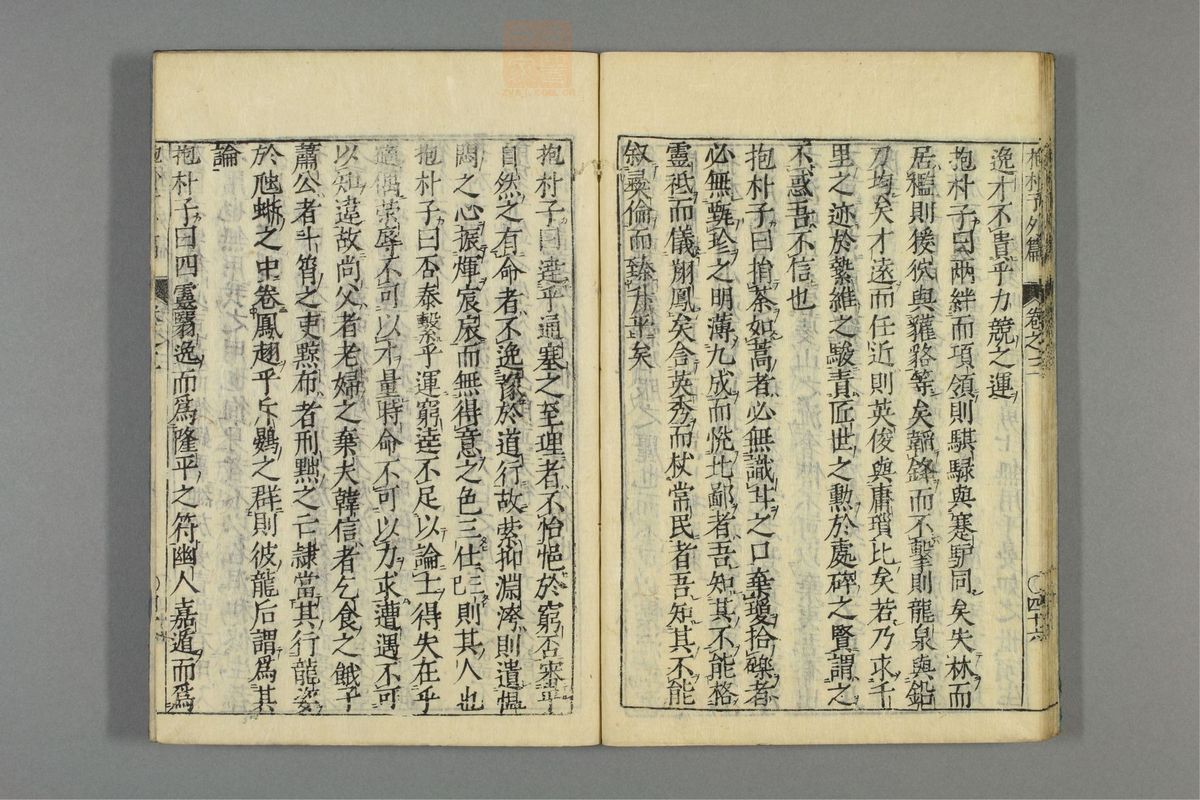 抱朴子外篇 卷之三 ○四十六
逸才不貴乎力競之運
抱朴子曰兩絆而項領則騏騄與蹇驢同矣失林而
居檻則猨狖與貛貉等矣韜鋒而不擊則龍泉與鉛
刀均矣才遠而任近則英俊與庸瑣比矣若乃求千
里之迹於縶維之駿責匠世之勲於處碑之賢謂之
不惑吾不信也
抱朴子曰捐荼如蒿者必無識甘之口棄瓊拾礫者
必無甄珍之明薄九成而悅北鄙者吾知其不能格
靈祇而儀翔鳳矣舍英秀而杖常民者吾知其不能
叙彛倫而臻升平矣
抱朴子曰達乎通塞之至理者不怡悒於窮否審乎
自然之有命者不逸豫於道行故縈抑淵洿則遺慍
悶之心振煇宸扆而無得意之色三仕三已則其人也
抱朴子曰否泰繫乎運窮達不足以論士得失在乎
適偶榮辱不可以才量時命不可以力求遭遇不可
以知違故尚父者老婦之棄夫韓信者乞食之餓子
蕭公者斗筲之吏黥布者刑黥之亡隷當其行龍姿
於虺蜥之中卷鳳翅乎斥鷃之群則彼龍后謂爲其
論
抱朴子曰四靈翳逸而爲隆平之符幽人嘉遁而爲